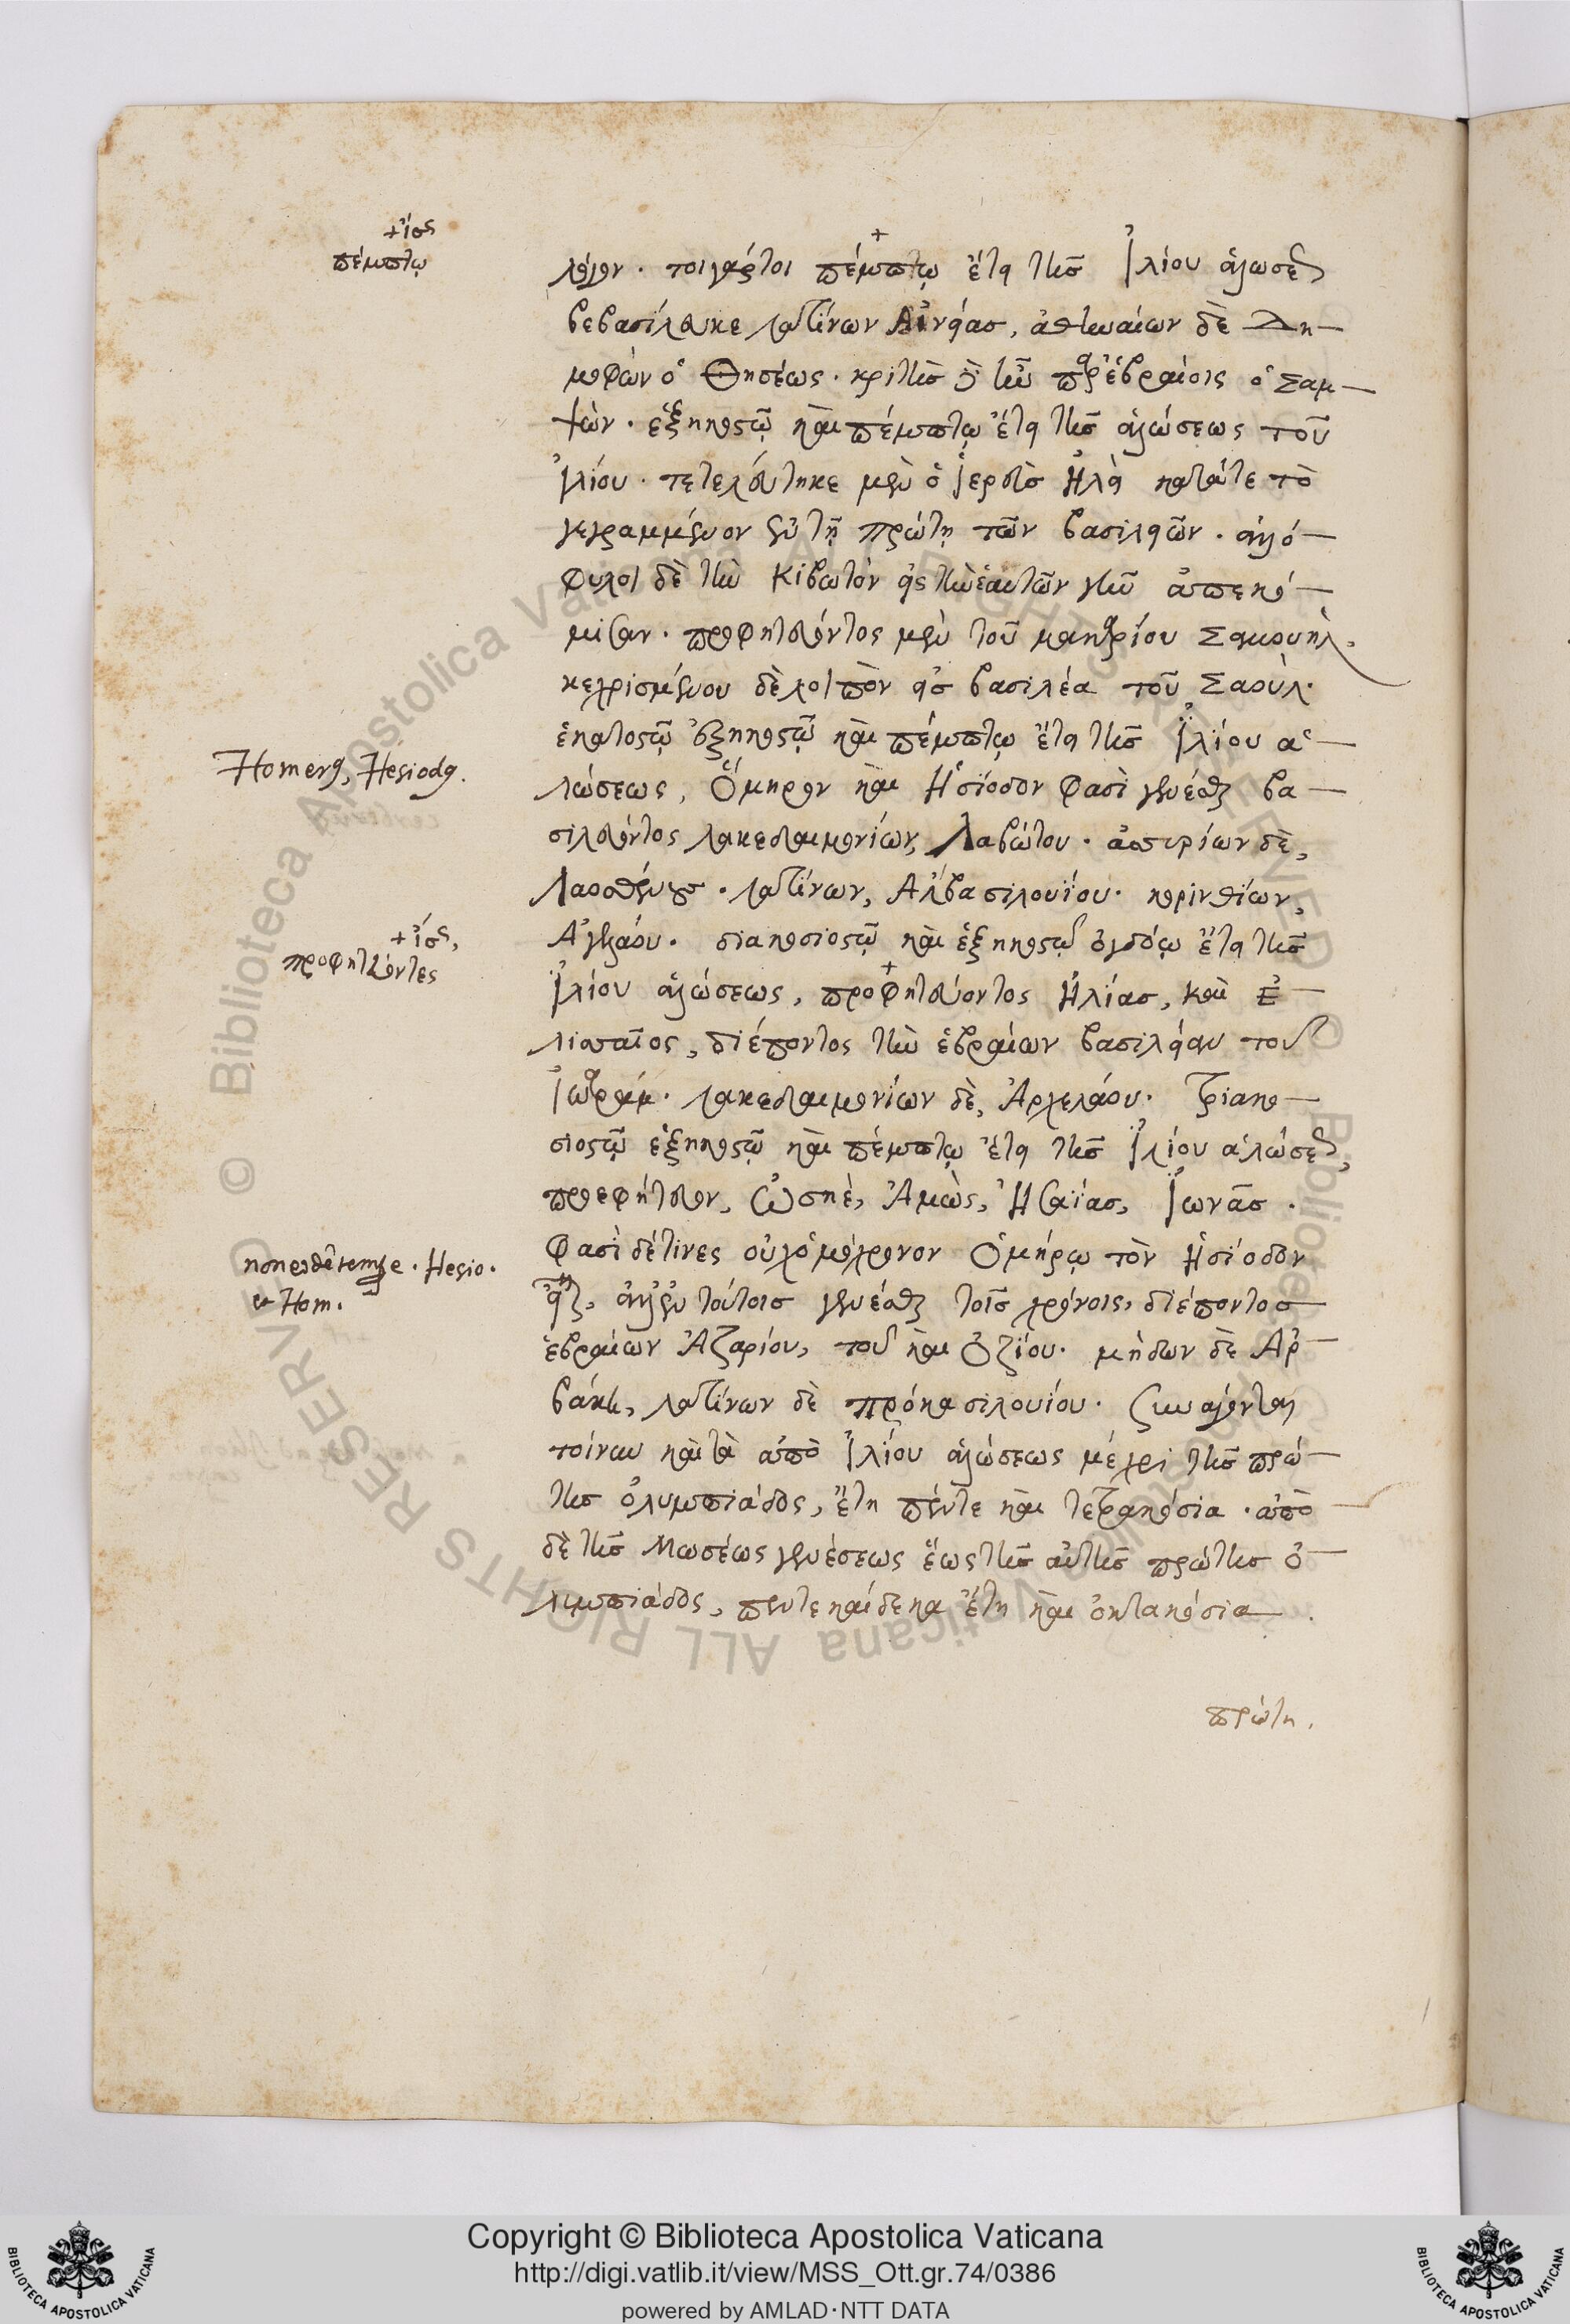 + ἴσς
πέμπτῳ
λόγον · τοιγάρτοι πέμπτῳ ἔτει τῆς Ἰλίου ἁλώσεως
βεβασίλευκε λατίνων Αἰνείας, ἀθηναίων δὲ Δη-
μοφῶν ὁ Θησέως · κριτὴς δὲ ἦν παρ' ἑβραίοις ὁ Σαμ-
ψών · ἑξηκοστῷ καὶ πέμπτῳ ἔτει τῆς ἁλώσεως τοῦ
Ἰλίου · τετελεύτηκε μὲν ὁ ἱερεὺς Ἠλεὶ κατά τε τὸ
γεγραμμένον ἐν τῇ πρώτῃ τῶν βασιλειῶν · ἀλλό-
φυλοι δὲ τὴν κιβωτὸν εἰς τὴν ἑαυτῶν γῆν ἀπεκό-
μισαν · προφητεύοντος μὲν τοῦ μακαρίου Σαμουὴλ,
κεχρισμένου δὲ λοιπὸν εἰς βασιλέα τοῦ Σαούλ ·
ἑκατοστῷ ἑξηκοστῷ καὶ πέμπτῳ ἔτει τῆς Ἰλίου ἁ-
Homerus, Hesiodus.
λώσεως, Ὅμηρον καὶ Ἡσίοδον φασὶ γενέσθαι βα-
σιλεύοντος λακεδαιμονίων, Λαβώτου · ἀσσυρίων δὲ,
Λαοσθένους · λατίνων, Ἄλβα σιλουΐου · κορινθίων,
+ ἴσς,
προφητεύοντες
Ἀγελάου · διακοσιοστῷ καὶ ἑξηκοστῷ ὀγδόῳ ἔτει τῆς
Ἰλίου ἁλώσεως, προφητεύοντος Ἠλίας, καὶ Ἐ-
λισσαῖος, διέποντος τὴν ἑβραίων βασιλείαν τοῦ
Ἰωράμ · λακεδαιμονίων δὲ, Ἀρχελάου · τριακο-
σιοστῷ ἑξηκοστῷ καὶ πέμπτῳ ἔτει τῆς Ἰλίου ἁλώσεως,
προεφήτευον, Ὠσηὲ, Ἀμὼς, Ἡσαΐας, Ἰωνᾶς ·
non eodem tempore · Hesio ·
& Hom.
φασὶ δέ τινες οὐχ ὁμόχρονον Ὁμήρῳ τὸν Ἡσίοδον
εἶναι, ἀλλ' ἐν τούτοις γενέσθαι τοῖς χρόνοις, διέποντος
ἑβραίων Ἀζαρίου, τοῦ καὶ Ὀζίου · μήδων δὲ Ἀρ-
βάκη, λατίνων δὲ πρόκα σιλουίου · συνάγονται
τοίνυν κατὰ ἀπὸ Ἰλίου ἁλώσεως μέχρι τῆς πρώ-
της ὀλυμπιάδος, ἔτη πέντε καὶ τετρακόσια · ἀπὸ
δὲ τῆς Μωσέως γενέσεως ἕως τῆς αὐτῆς πρώτης ὀ-
λυμπιάδος, πεντεκαίδεκα ἔτη καὶ ὀκτακόσια .
πρώτη.
Copyright © Biblioteca Apostolica Vaticana
http://digi.vatlib.it/view/MSS_Ott.gr.74/0386
powered by AMLAD·NTT DATA
BIBLIOTECA APOSTOLICA VATICANA
BIBLIOTECA APOSTOLICA VATICANA
© Biblioteca Apostolica Vaticana ALL RIGHTS RESERVED
© Biblioteca Apostolica Vaticana ALL RIGHTS RESERVED